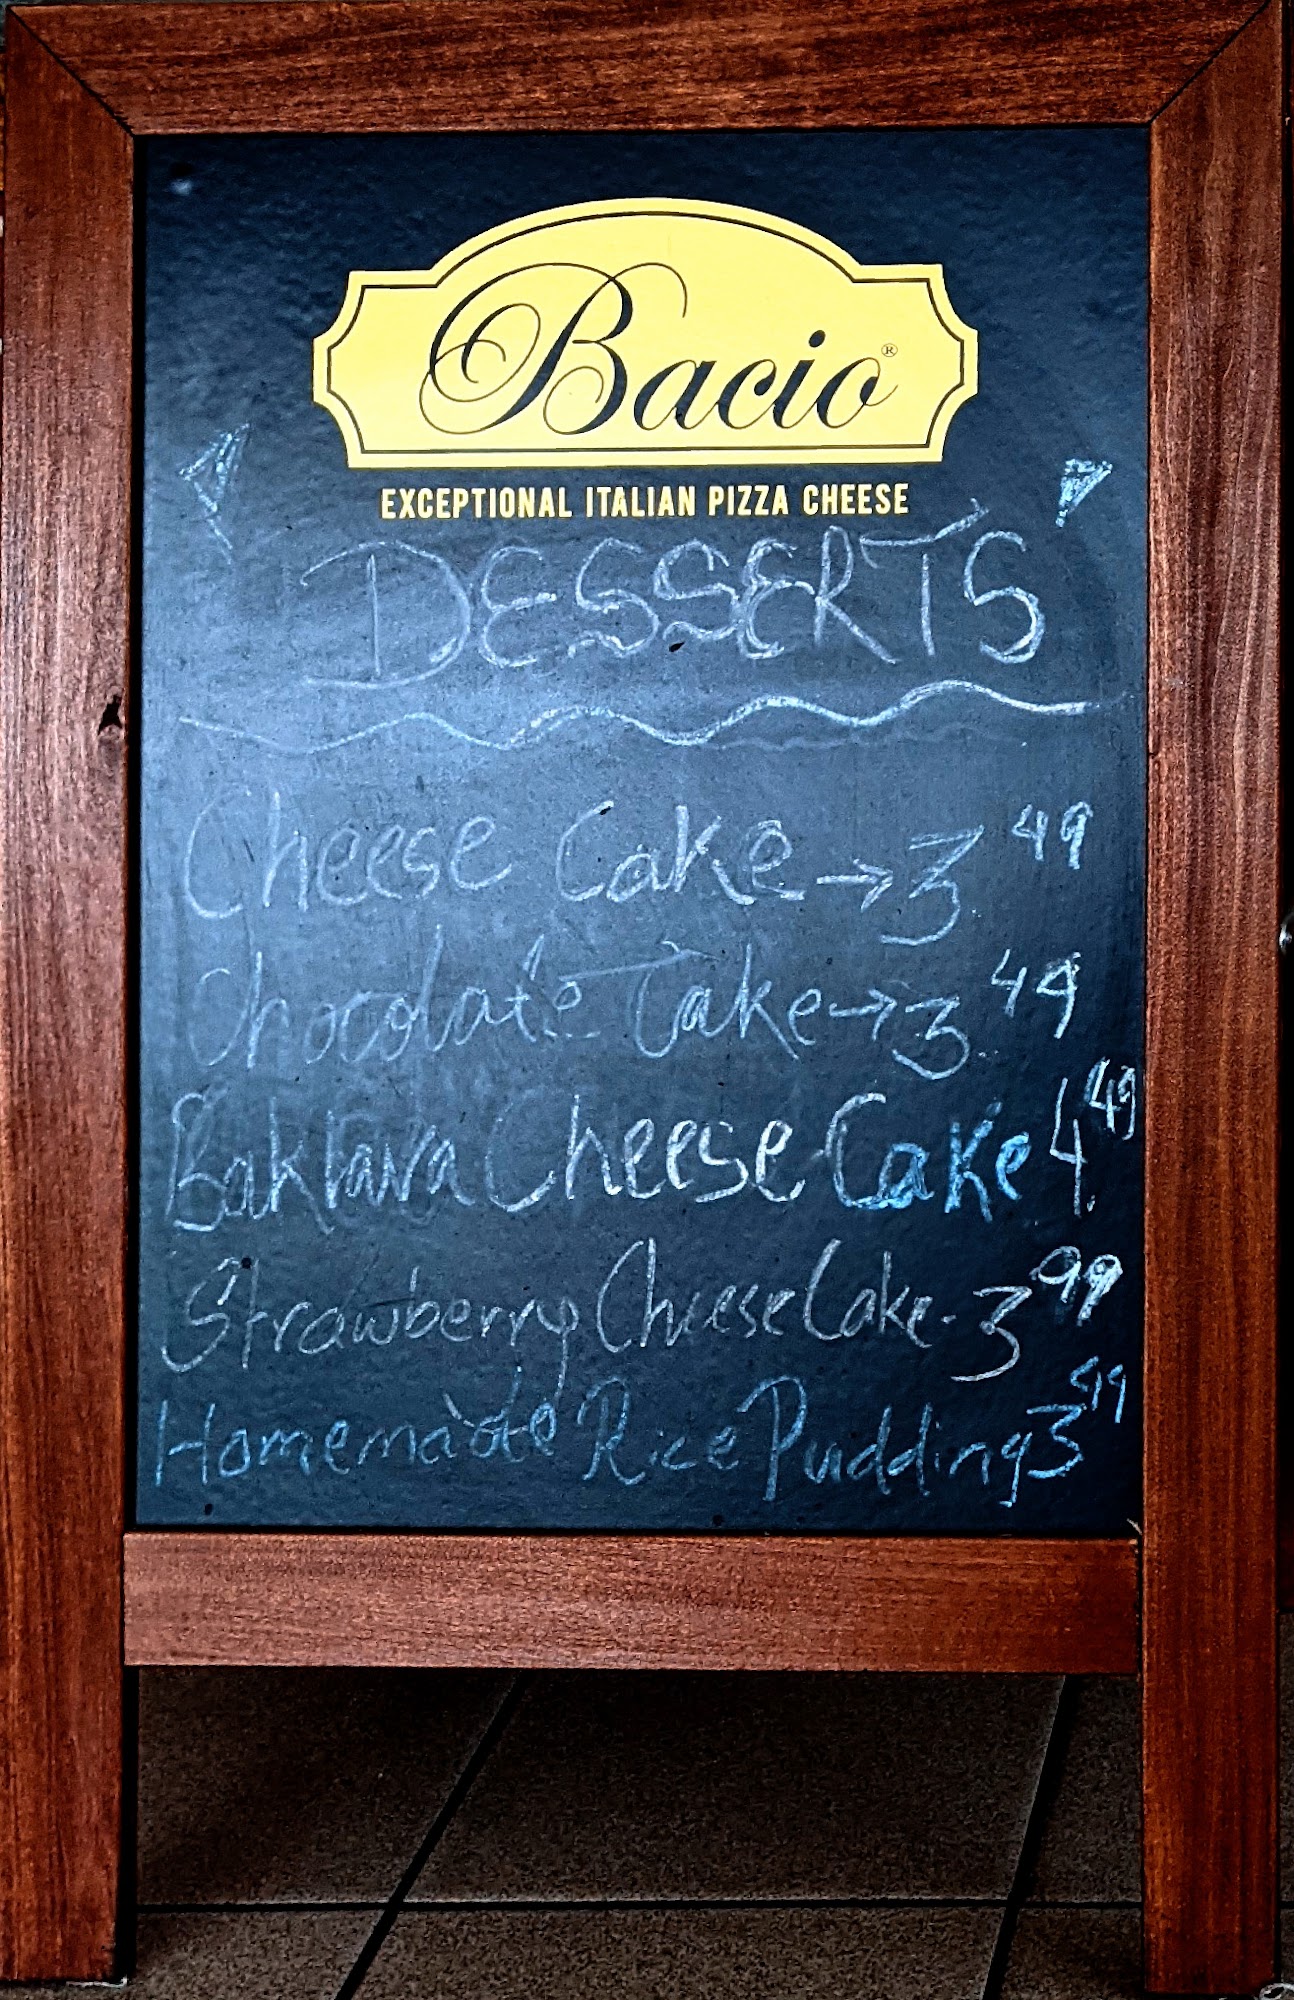 Bacio®
EXCEPTIONAL ITALIAN PIZZA CHEESE
DESSERTS
Cheese Cake → 3 49
Chocolate Cake → 3 49
Baklava Cheese Cake 4 49
Strawberry Cheese Cake - 3 99
Homemade Rice Pudding 3